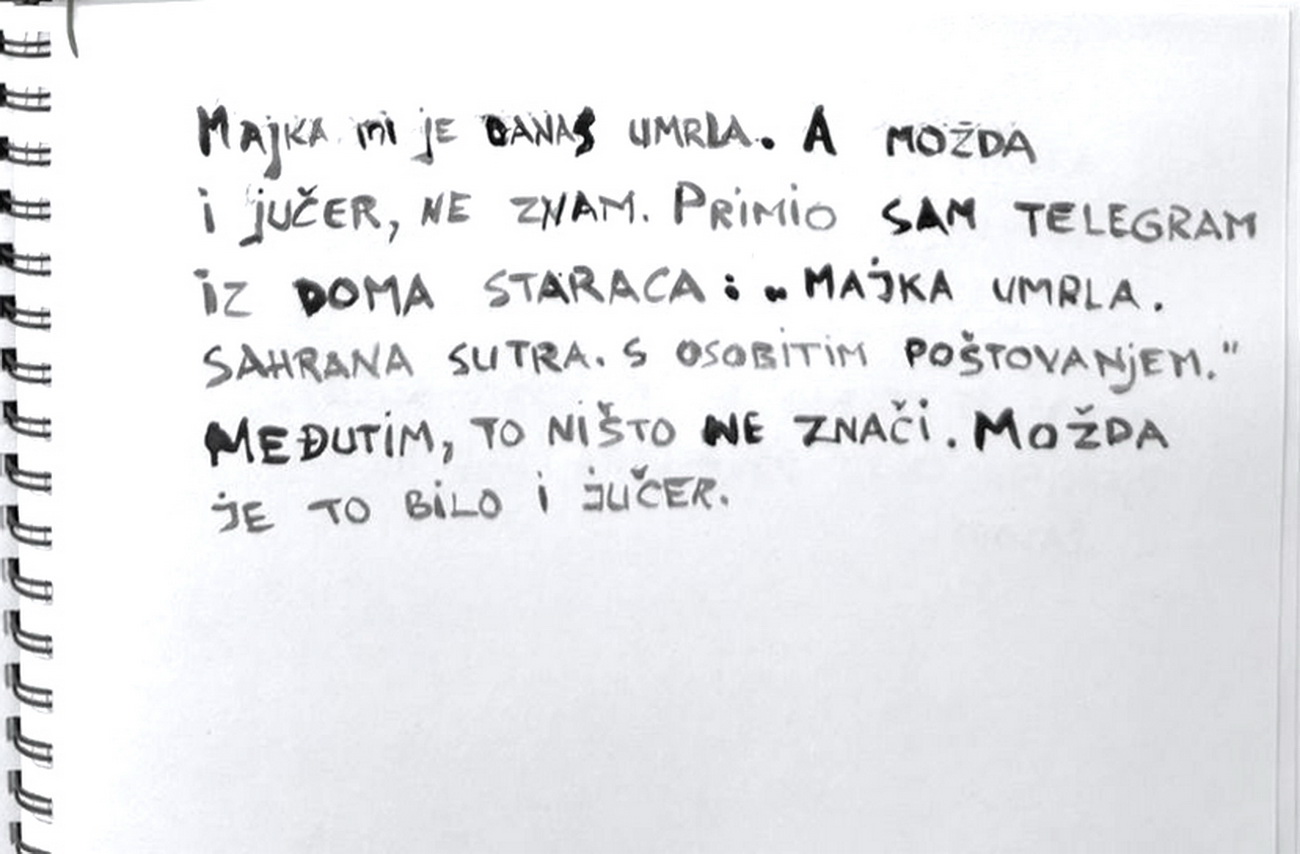 Majka mi je danas umrla. A možda
i jučer, ne znam. Primio sam telegram
iz doma staraca: „Majka umrla.
Sahrana sutra. S osobitim poštovanjem."
Međutim, to ništo ne znači. Možda
je to bilo i jučer.